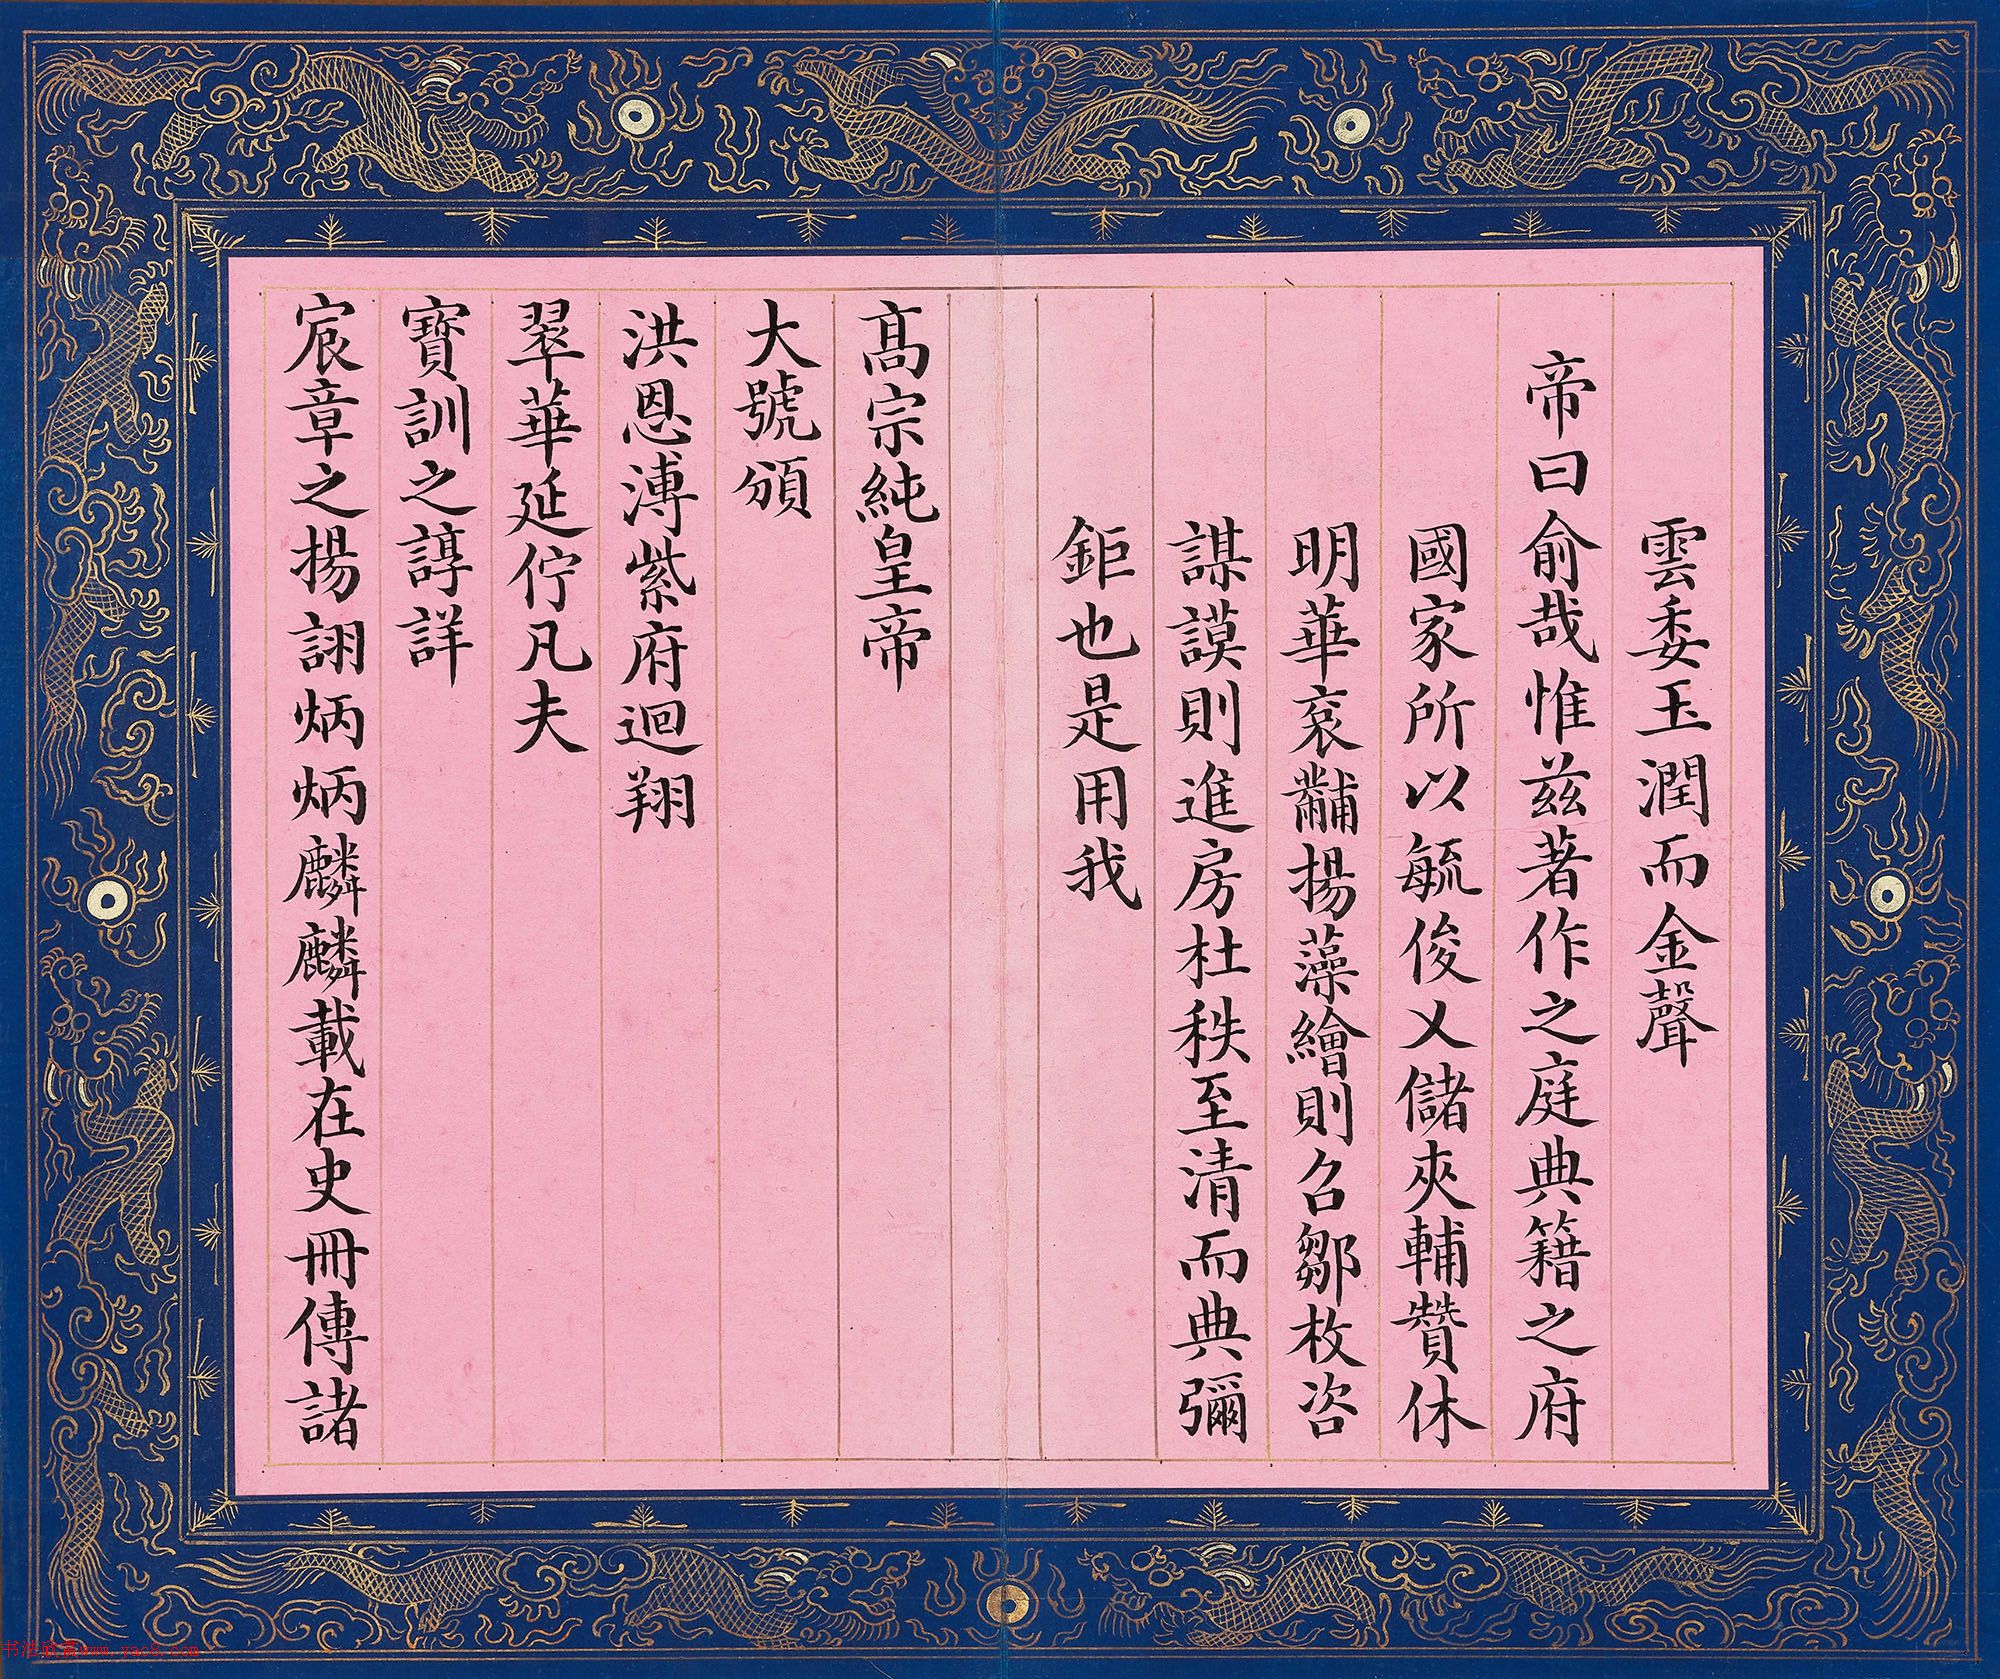 雲委玉潤而金聲
帝曰俞哉惟兹著作之庭典籍之府
國家所以毓俊乂儲夾輔贊休
明華衮黼揚藻繪則召鄒枚咨
謀謨則進房杜秩至清而典彌
鉅也是用我
高宗純皇帝
大號頒
洪恩溥紫府迴翔
翠華延佇凡夫
寶訓之諄詳
宸章之揚詡炳炳麟麟載在史冊傳諸
书法欣赏www.yac8.com